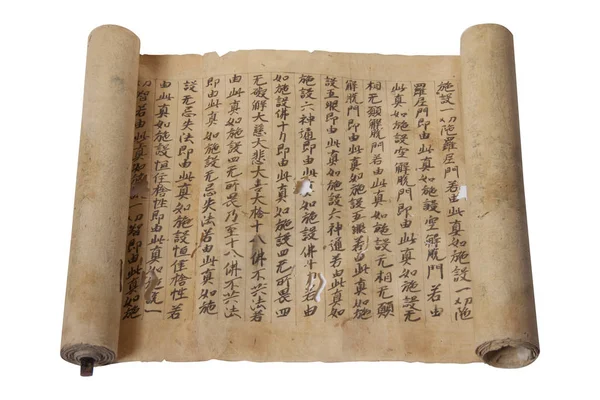 施設一切陁羅尼門若由此真如施設一切陁
羅尼門即由此真如施設空解脫門若由
此真如施設空解脫門即由此真如施設无
相无願解脫門若由此真如施設无相无願
解脫門即由此真如施設五眼若由此真如
施設五眼即由此真如施設六神通若由此真如
施設六神通即由此真如施設佛十力若由
如施設佛十力即由此真如施設四无所畏四
无礙解大慈大悲大喜大捨十八佛不共法若
由此真如施設四无所畏乃至十八佛不共法
即由此真如施設无忘失法若由此真如施
設无忘失法即由此真如施設恒住捨性若
由此真如施設恒住捨性即由此真如施設一
切智若由此真如施一切智即由此真如施